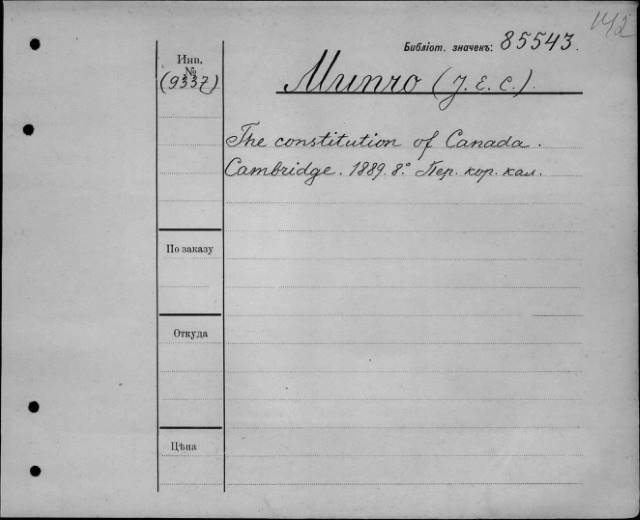 142
Библіот. значекъ: 85543.
Инв.
№
(9337)
Munro (J. E. C.).
The constitution of Canada.
Cambridge. 1889. 8.° Пер. кор. кал.
По заказу
Откуда
Цѣна